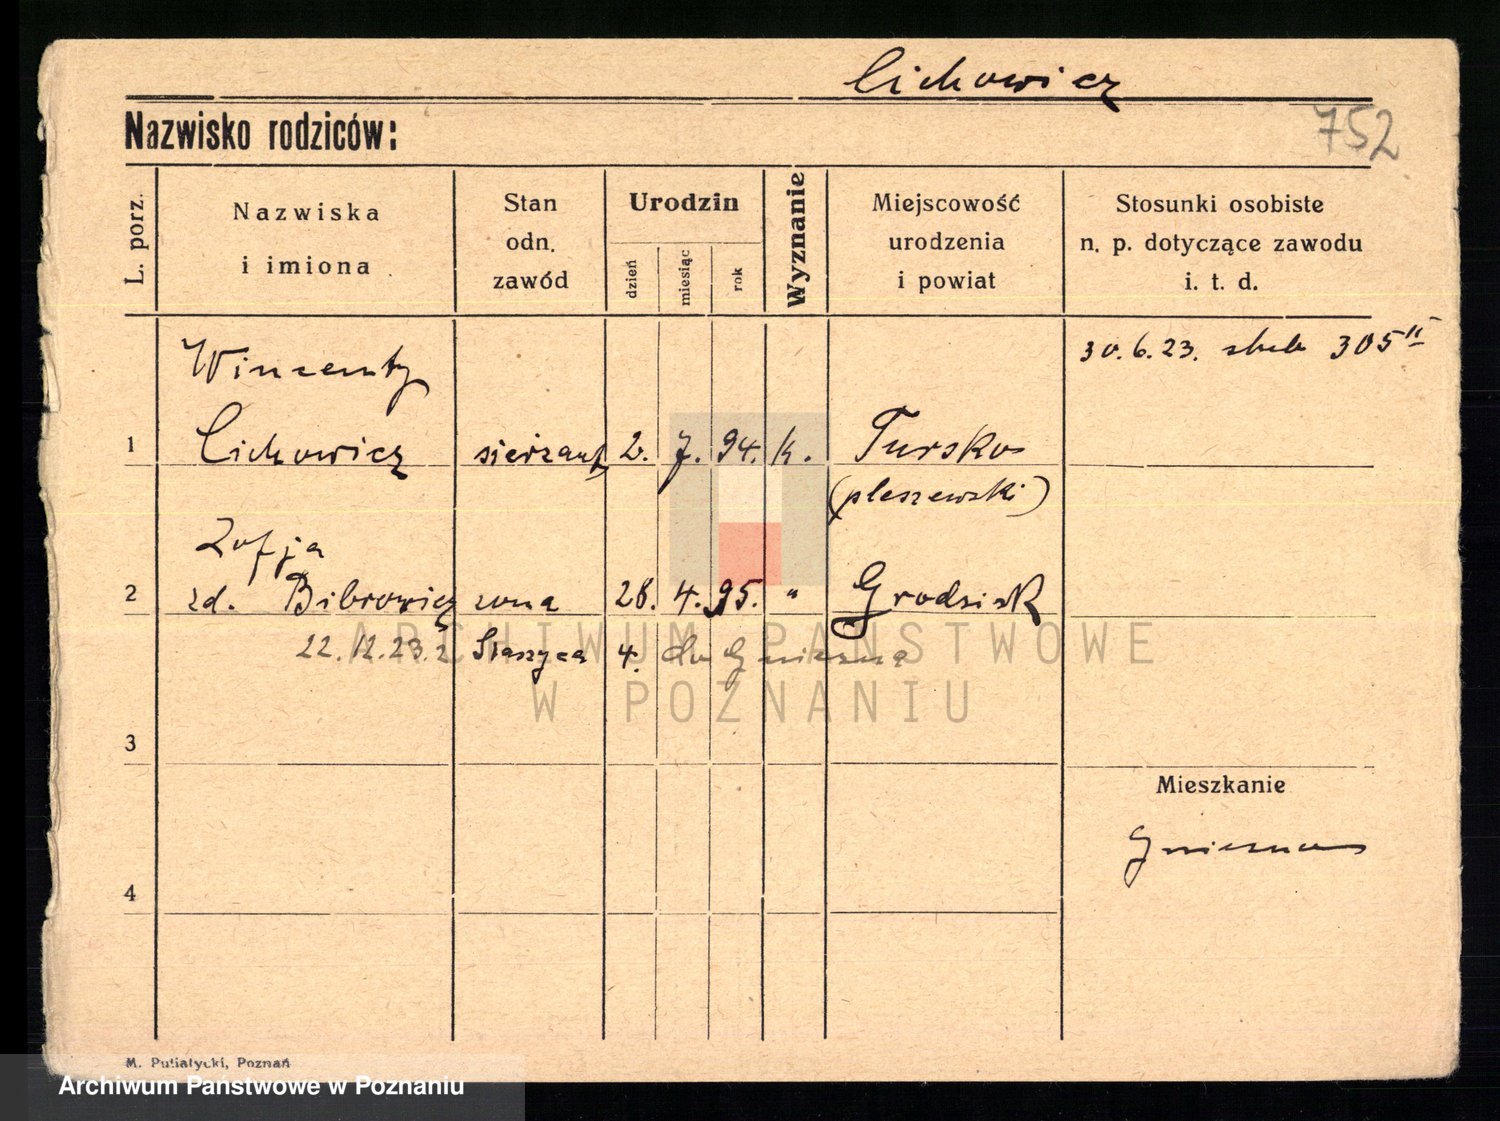 Cichowicz
Nazwisko rodziców:
752
L. porz.
Nazwiska
i imiona
Stan
odn.
zawód
Urodzin
dzień
miesiąc
rok
Wyznanie
Miejscowość
urodzenia
i powiat
Stosunki osobiste
n. p. dotyczące zawodu
i. t. d.
30. 6. 23. 305
Wincenty
1 Cichowicz sierżant 2. 7. 94. k. Tursko
(pleszewski)
Zofja
2 zd. Bibrowicz żona 28. 4. 95. " Grodzisk
22. 12. 23. z Staszyca 4. do Gniezna
ARCHIWUM PAŃSTWOWE
W POZNANIU
3
Mieszkanie
Gniezno
4
M. Putiatycki, Poznań
Archiwum Państwowe w Poznaniu